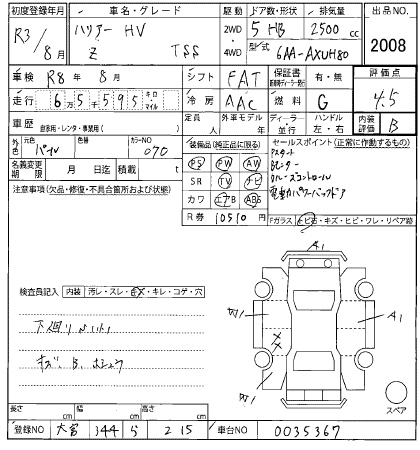 初度登録年月 車名・グレード 駆動 ドア数・形状 排気量 出品NO.
R3/8月 ハリアー HV 2WD 5 HB 2500cc 2008
Z TSS 4WD 型式 6AA-AXUH80
車検 R8年 8月 シフト FAT 保証書 有・無 評価点
走行 65595 キロ・マイル 冷房 AAC 燃料 G 4.5
車歴 自家用・レンタ・事業用( ) 外車モデル 年 ディーラー 並行 ハンドル 左・右 内装評価 B
外色 元色 パール 色替 カラーNO 070 装備品(純正品に限る) セールスポイント(正常に作動するもの)
名義変更期限 月 日迄 積載 t PS PW AW
注意事項(欠品・修復・不具合箇所および状態) SR TV ナビ クルーズコントロール
カワ エアB ABS 電動パワーバックドア
R券 10510 Fガラス 飛石・キズ・ヒビ・ワレ・リペア跡
A1
検査員記入 内装 汚レ・スレ・キズ・キレ・コゲ・穴
A1
下廻り
キズ、B、
長さ cm 幅 cm 高さ cm スペア
登録NO 大宮 344 ら 215 車台NO 0035367